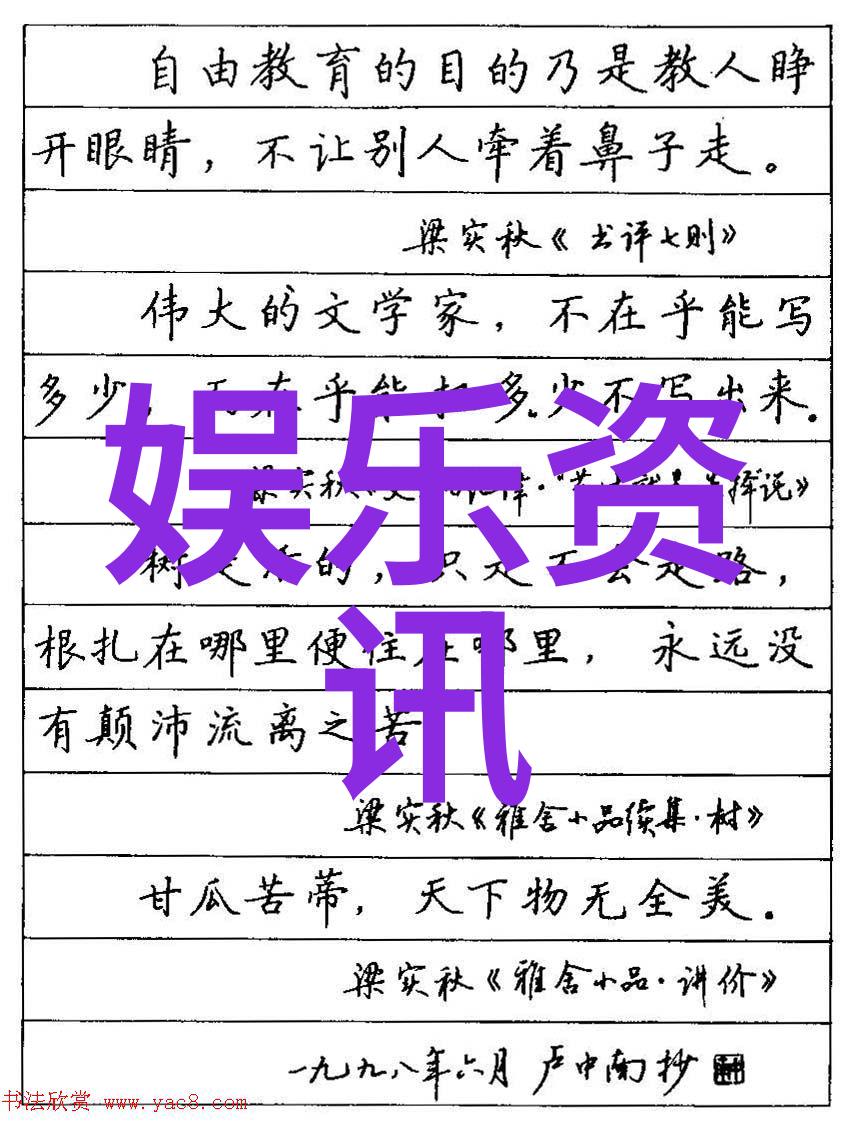 自由教育的目的乃是教人睁
开眼睛，不让别人牵着鼻子走。
梁实秋《书评七则》
伟大的文学家，不在乎能写
多少，
乎能
多少不写出来。
梁实秋
挥说》
树
的，只是不会走路，
根扎在哪里便住在哪里，永远没
有颠沛流离之苦
梁实秋《雅舍小品续集·树》
甘瓜苦蒂，天下物无全美。
梁实秋《雅舍小品·讲价》
一九九八年六月 卢中南抄
书法欣赏 www.yac8.com
娱乐资
讯